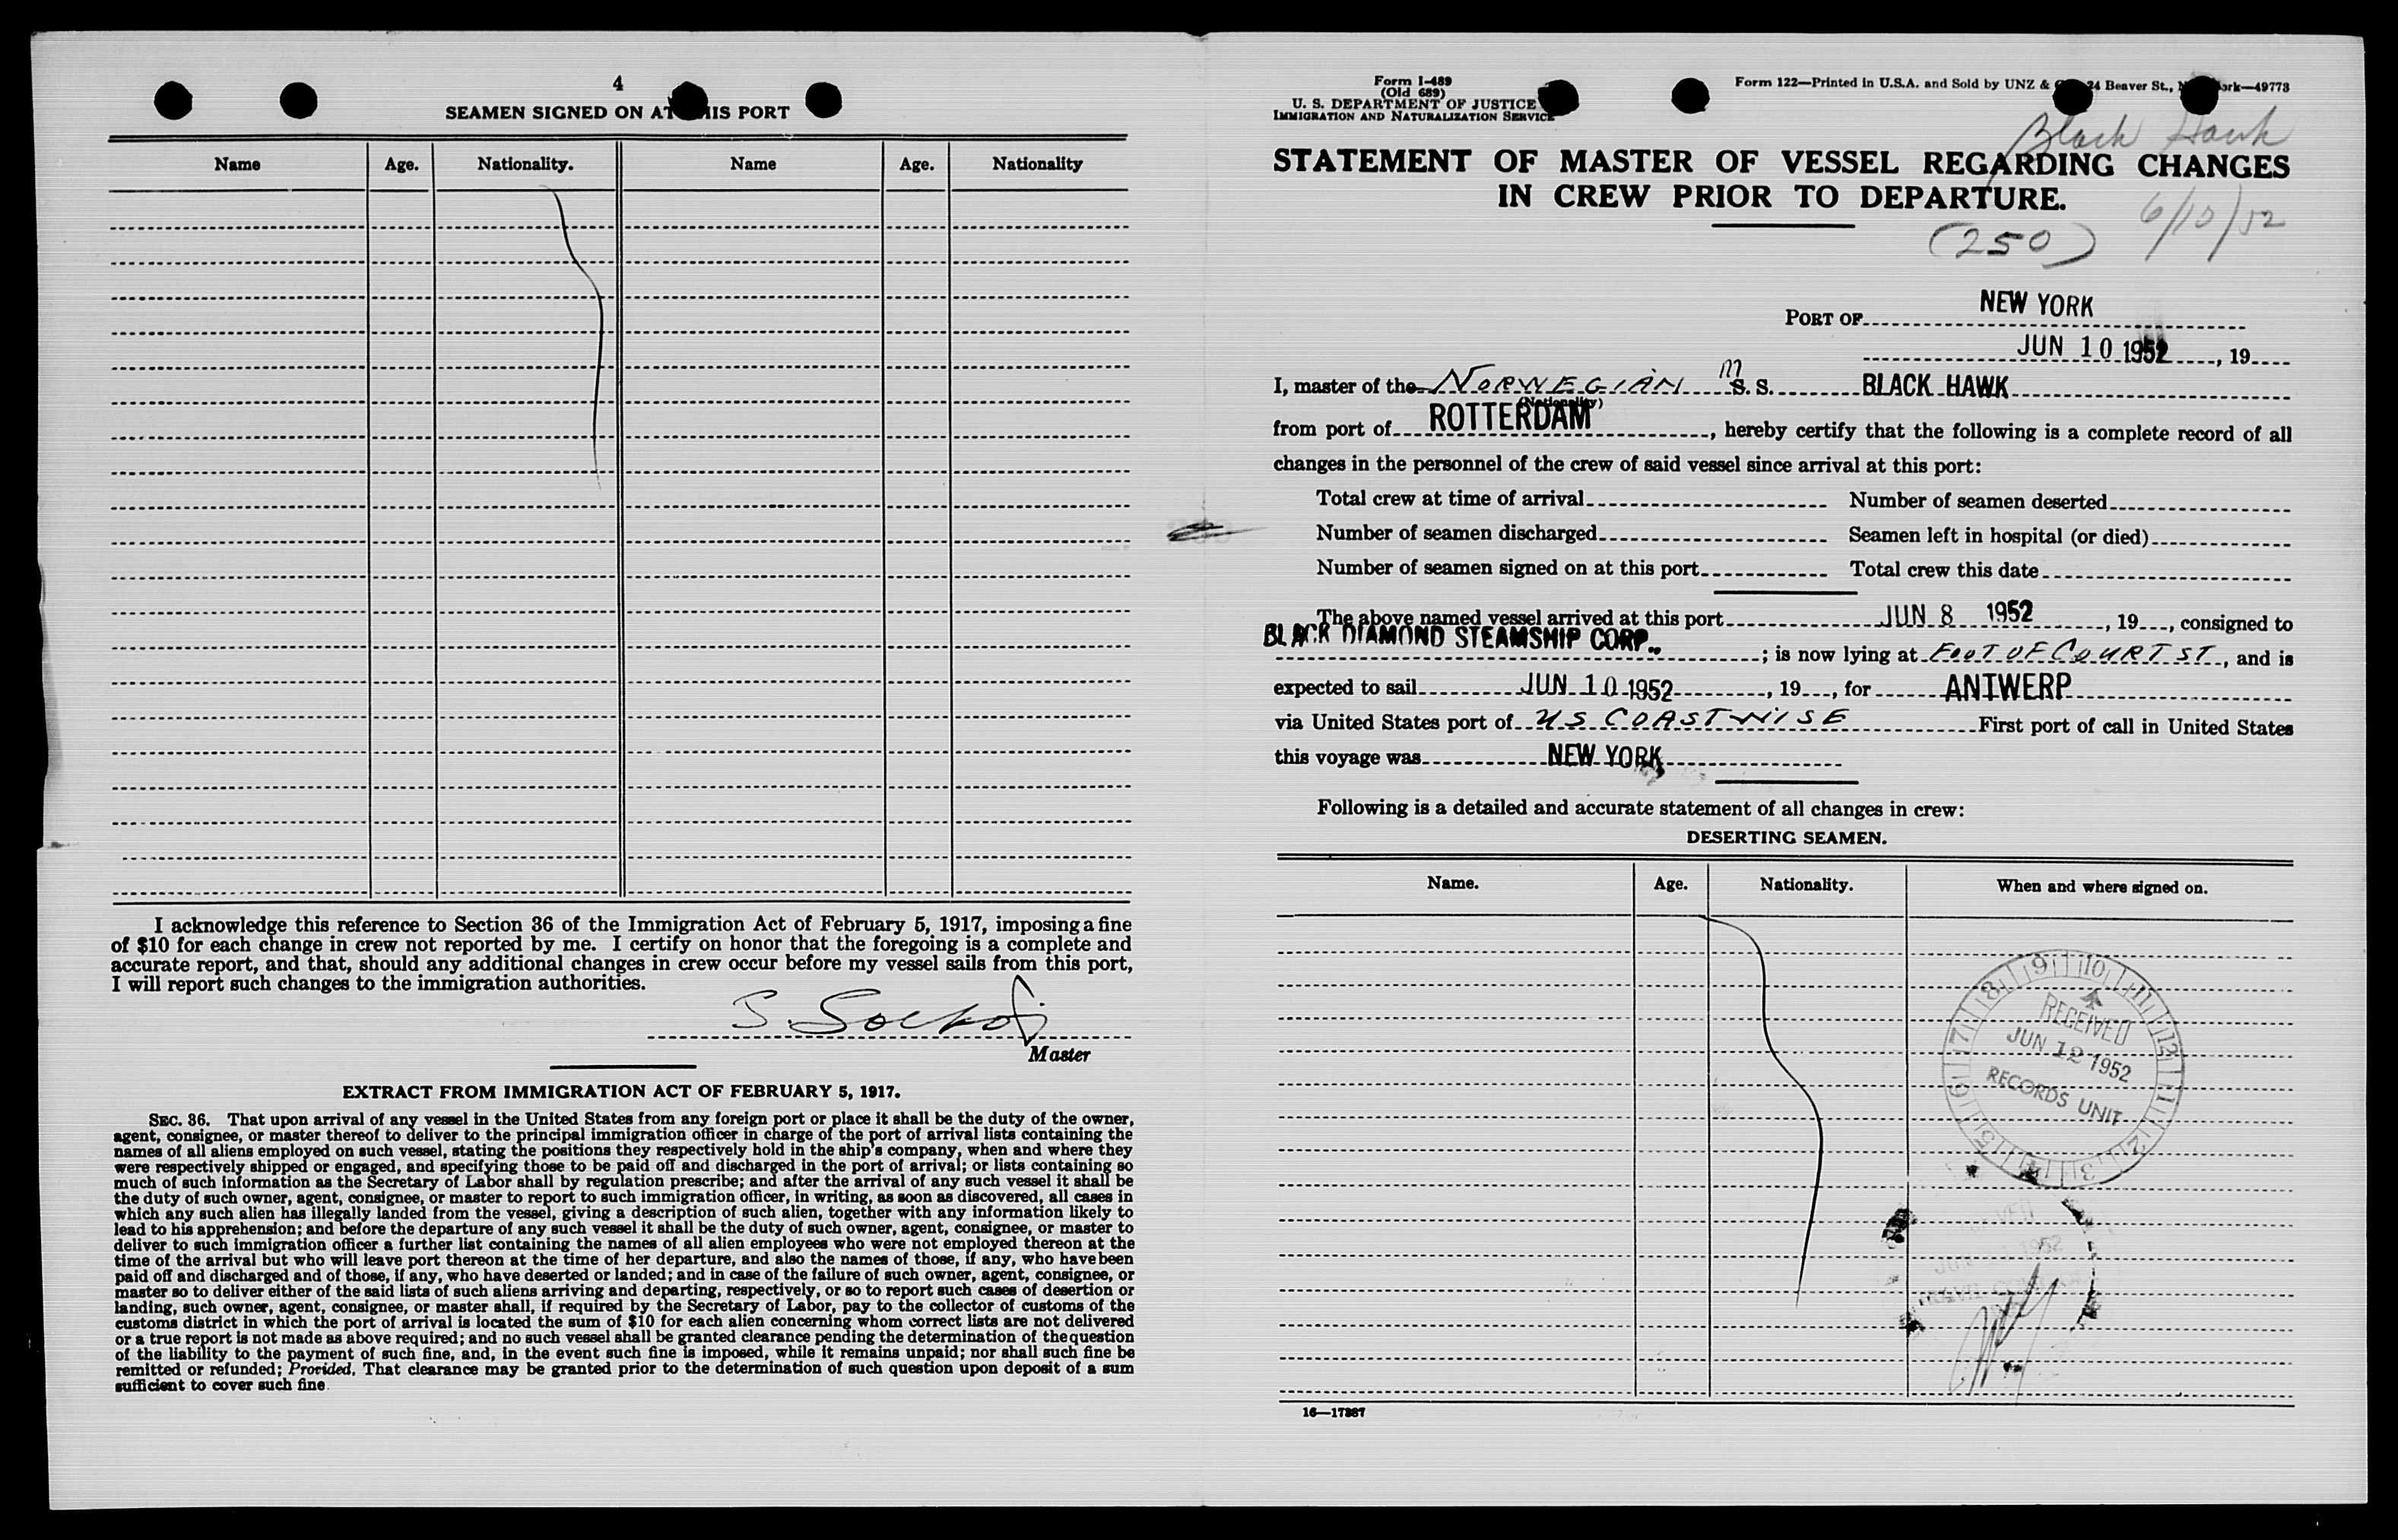 4
SEAMEN SIGNED ON AT THIS PORT
Name Age. Nationality. Name Age. Nationality
I acknowledge this reference to Section 36 of the Immigration Act of February 5, 1917, imposing a fine
of $10 for each change in crew not reported by me. I certify on honor that the foregoing is a complete and
accurate report, and that, should any additional changes in crew occur before my vessel sails from this port,
I will report such changes to the immigration authorities.
S.
Master
EXTRACT FROM IMMIGRATION ACT OF FEBRUARY 5, 1917.
SEC. 36. That upon arrival of any vessel in the United States from any foreign port or place it shall be the duty of the owner,
agent, consignee, or master thereof to deliver to the principal immigration officer in charge of the port of arrival lists containing the
names of all aliens employed on such vessel, stating the positions they respectively hold in the ship's company, when and where they
were respectively shipped or engaged, and specifying those to be paid off and discharged in the port of arrival; or lists containing so
much of such information as the Secretary of Labor shall by regulation prescribe; and after the arrival of any such vessel it shall be
the duty of such owner, agent, consignee, or master to report to such immigration officer, in writing, as soon as discovered, all cases in
which any such alien has illegally landed from the vessel, giving a description of such alien, together with any information likely to
lead to his apprehension; and before the departure of any such vessel it shall be the duty of such owner, agent, consignee, or master to
deliver to such immigration officer a further list containing the names of all alien employees who were not employed thereon at the
time of the arrival but who will leave port thereon at the time of her departure, and also the names of those, if any, who have been
paid off and discharged and of those, if any, who have deserted or landed; and in case of the failure of such owner, agent, consignee, or
master so to deliver either of the said lists of such aliens arriving and departing, respectively, or so to report such cases of desertion or
landing, such owner, agent, consignee, or master shall, if required by the Secretary of Labor, pay to the collector of customs of the
customs district in which the port of arrival is located the sum of $10 for each alien concerning whom correct lists are not delivered
or a true report is not made as above required; and no such vessel shall be granted clearance pending the determination of the question
of the liability to the payment of such fine, and, in the event such fine is imposed, while it remains unpaid; nor shall such fine be
remitted or refunded; Provided, That clearance may be granted prior to the determination of such question upon deposit of a sum
sufficient to cover such fine.
Form I-489
(Old 689)
U. S. DEPARTMENT OF JUSTICE
IMMIGRATION AND NATURALIZATION SERVICE
Form 122—Printed in U.S.A. and Sold by UNZ & 24 Beaver St., ork—49773
Black Hawk
STATEMENT OF MASTER OF VESSEL REGARDING CHANGES
IN CREW PRIOR TO DEPARTURE.
6/10/52
(250)
PORT OF NEW YORK
JUN 10 1952, 19
I, master of the NORWEGIAN M S. S. BLACK HAWK
(Nationality)
from port of ROTTERDAM, hereby certify that the following is a complete record of all
changes in the personnel of the crew of said vessel since arrival at this port:
Total crew at time of arrival Number of seamen deserted
Number of seamen discharged Seamen left in hospital (or died)
Number of seamen signed on at this port Total crew this date
The above named vessel arrived at this port JUN 8 1952, 19, consigned to
BLACK DIAMOND STEAMSHIP CORP.; is now lying at FOOT OF COURT ST, and is
expected to sail JUN 10 1952, 19, for ANTWERP
via United States port of US COASTWISE First port of call in United States
this voyage was NEW YORK
Following is a detailed and accurate statement of all changes in crew:
DESERTING SEAMEN.
Name. Age. Nationality. When and where signed on.
9 10 11 12 1 2 3 4 5 6 7 8
RECEIVED
JUN 12 1952
RECORDS UNIT
1952
16—17387